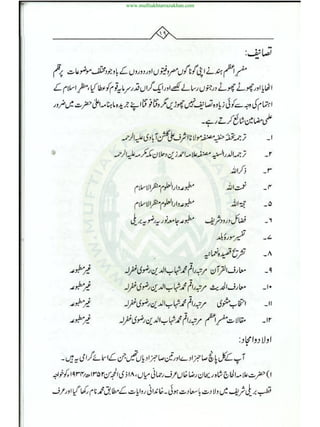 www.muftiakhtarrazakhan.com
۱۹
تصانیف:
مفسر اعظم ہند نے اپنی گوناگوں مصروفیتوں اور دوروں کے باوجود مختلف موضوعات پر قلم
اٹھایا اور چھوٹے چھوٹے درجنوں رسالے لکھے اور ایک گراں قدر سرمایہ قوم کو عطا کیا، منظر اسلام کے
اہتمام کی وجہ سے کوئی زیادہ تصانیف نہیں چھوڑیں مگر وقتاً فوقتاً اپنے جریدہ ماہنامہ اعلیٰ حضرت میں ضرور
علمی مضامین شائع کرتے رہے۔
۱۔ ترجمہ تحفۂ حنفیہ مصنفہ مولانا اشرف علی گلشن آبادی علیہ الرحمہ
۲۔ ترجمہ الدرر السنیہ مصنفہ علامہ احمد زین دحلان مکہ مکرمہ علیہ الرحمہ
۳۔ ذکر اللہ
۴۔ نعمت اللہ مطبوعہ دارالعلوم منظر الاسلام
۵۔ حجۃ اللہ مطبوعہ دارالعلوم منظر الاسلام
۶۔ فضائل درود شریف مطبوعہ جامعہ نوریہ رضویہ بریلی
۷۔ تفسیر سورۂ بلد
۸۔ تشریح قصیدہ نعمانیہ
۹۔ معارف القرآن مرتبہ راقم محمد شہاب الدین رضوی غفرلہ غیر مطبوعہ
۱۰۔ معارف الحدیث مرتبہ راقم محمد شہاب الدین رضوی غفرلہ غیر مطبوعہ
۱۱۔ انتخاب مثنوی مرتبہ راقم محمد شہاب الدین رضوی غفرلہ غیر مطبوعہ
۱۲۔ مقالات مفسر اعظم مرتبہ راقم محمد شہاب الدین رضوی غفرلہ غیر مطبوعہ
اولاد و امجاد:
آپ کے کل پانچ صاحبزادے اور تین صاحبزادیاں تھیں جن کے اسمائے گرامی یہ ہیں۔
۱) حضرت علامہ الحاج شاہ ریحان رضا خاں عرف رحمانی میاں، ۱۸ ذی الحجہ ۱۳۵۲ھ/۱۹۳۴ء کو خواجہ
قطب بریلی شریف میں ولادت باسعادت ہوئی۔ خاندانی روایات کے مطابق محمد نام رکھا گیا اور عرف